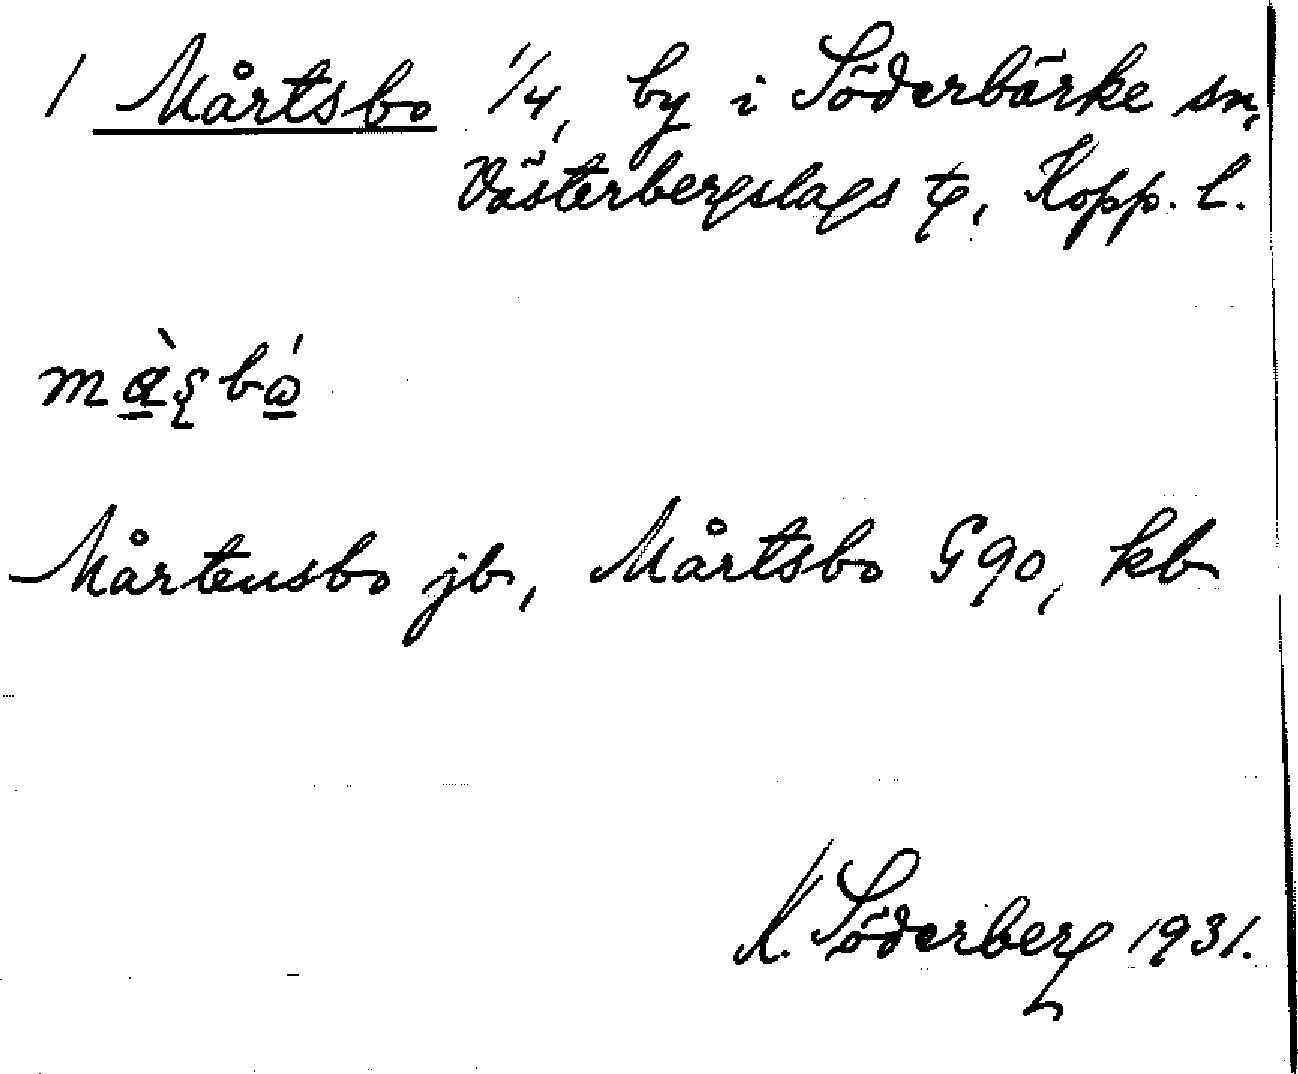 1 Mårtsbo 1/4, by i Söderbärke sn,
Västerbergslags tg, Kopp. l.
Mårtensbo jb, Mårtsbo G90, kb
K. Söderberg 1931.